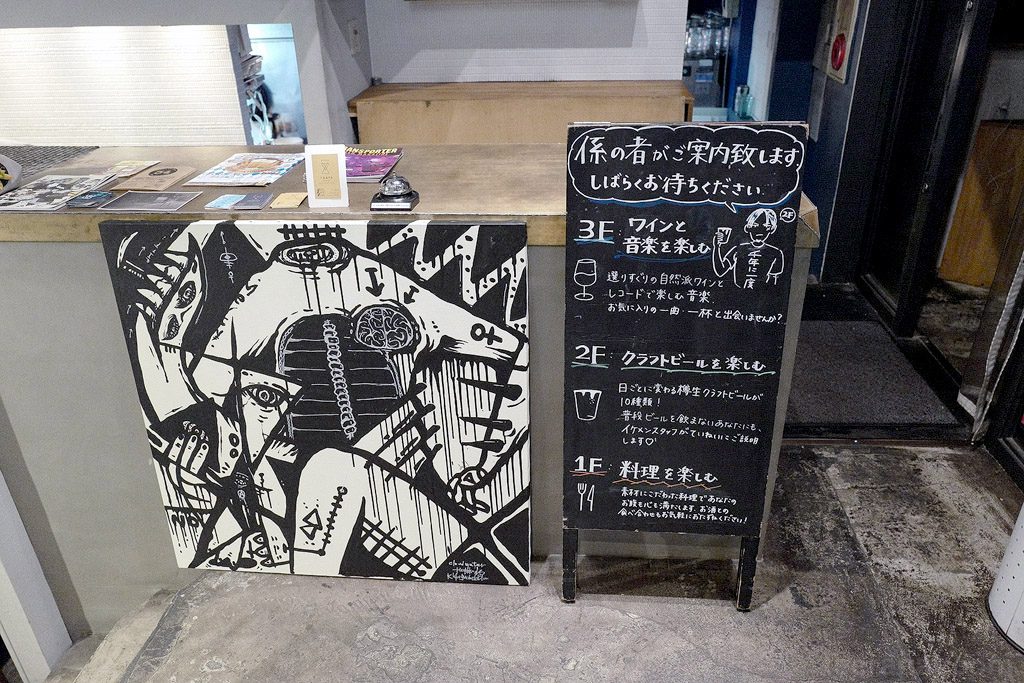 TRANSPORTER
係の者がご案内致します。
しばらくお待ちください
2F
千年に一度
3F:
ワインと
音楽を楽しむ
選りすぐりの自然派ワインと
レコードで楽しむ音楽。
お気に入りの一曲・一杯と出会いませんか?
2F: クラフトビールを楽しむ
日ごとに変わる樽生クラフトビールが
10種類!
普段ビールを飲まないあなたにも、
イケメンスタッフがていねいにご説明
します♡
1F: 料理を楽しむ
素材にこだわった料理であなたの
お腹も心も満たします。お酒との
食べ合わせもお気軽におたずねください!